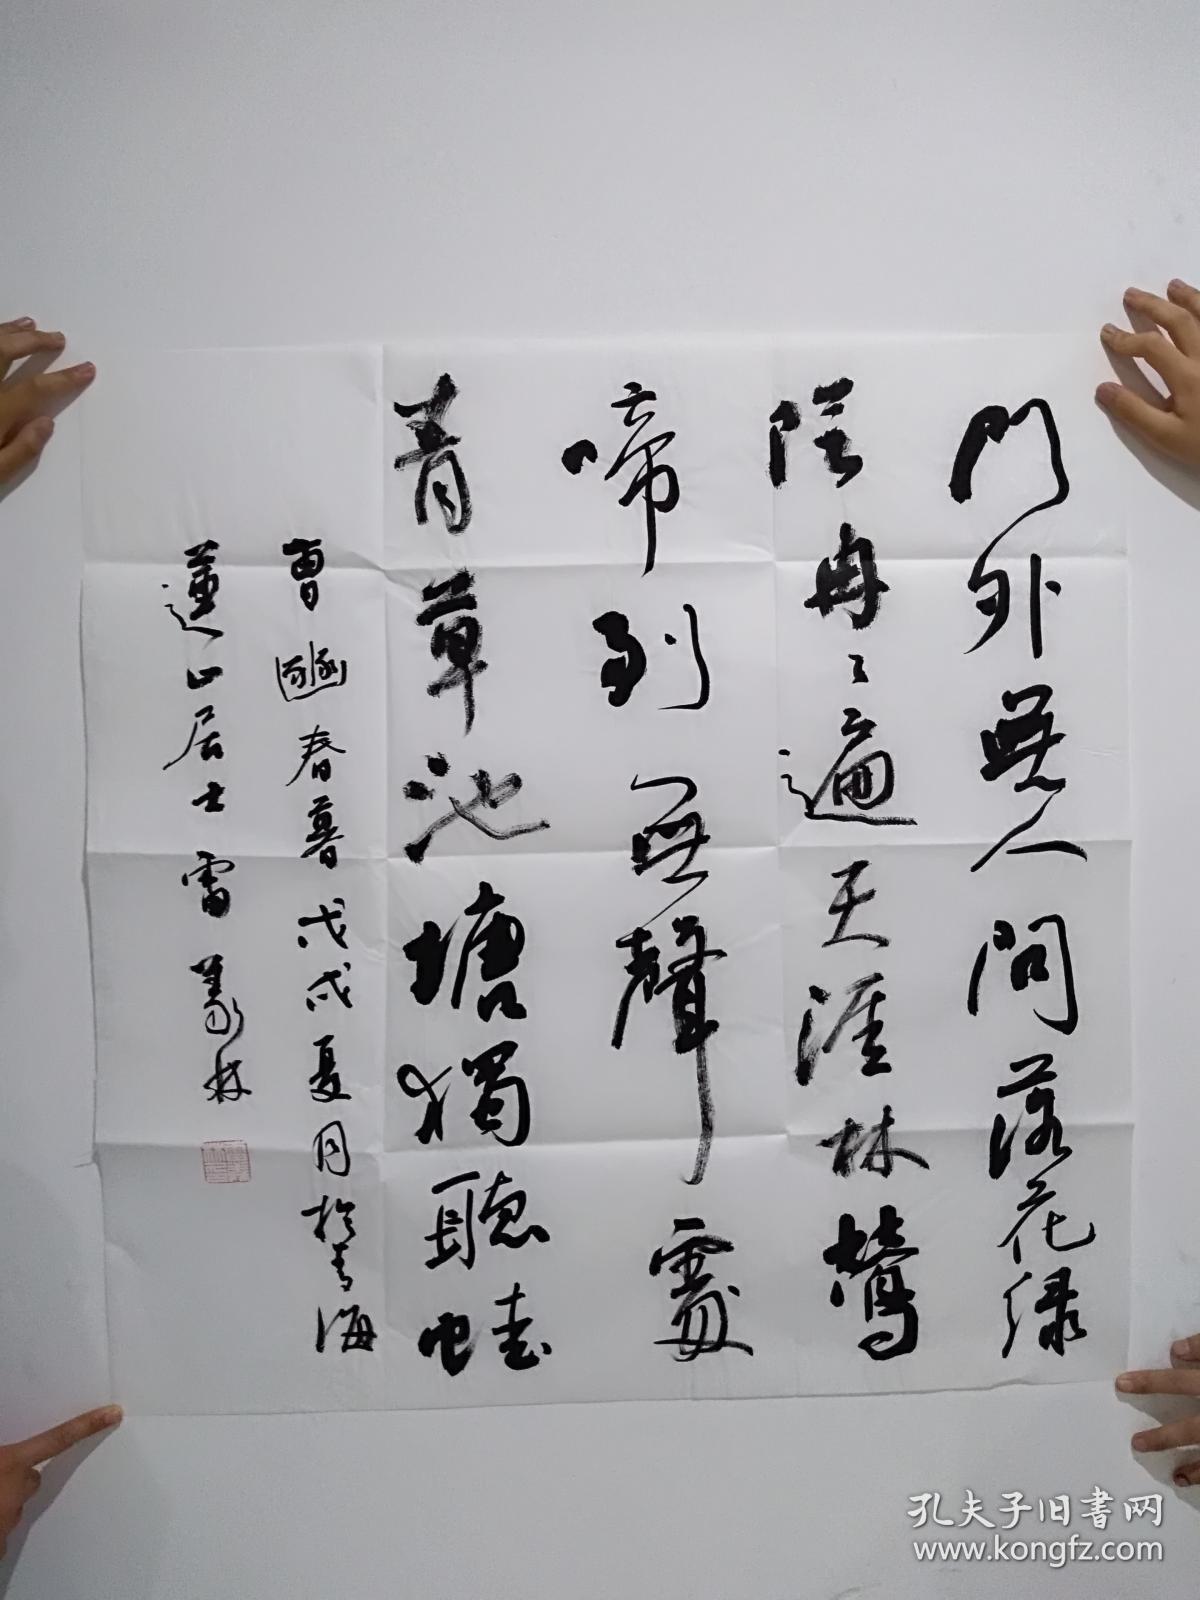 門外無人問落花綠
陰冉々遍天涯林鶯
啼到無聲處
青草池塘獨聽蛙
曹豳春暮戊戌夏月於青海
蓮山居士雷
孔夫子旧书网
www.kongfz.com